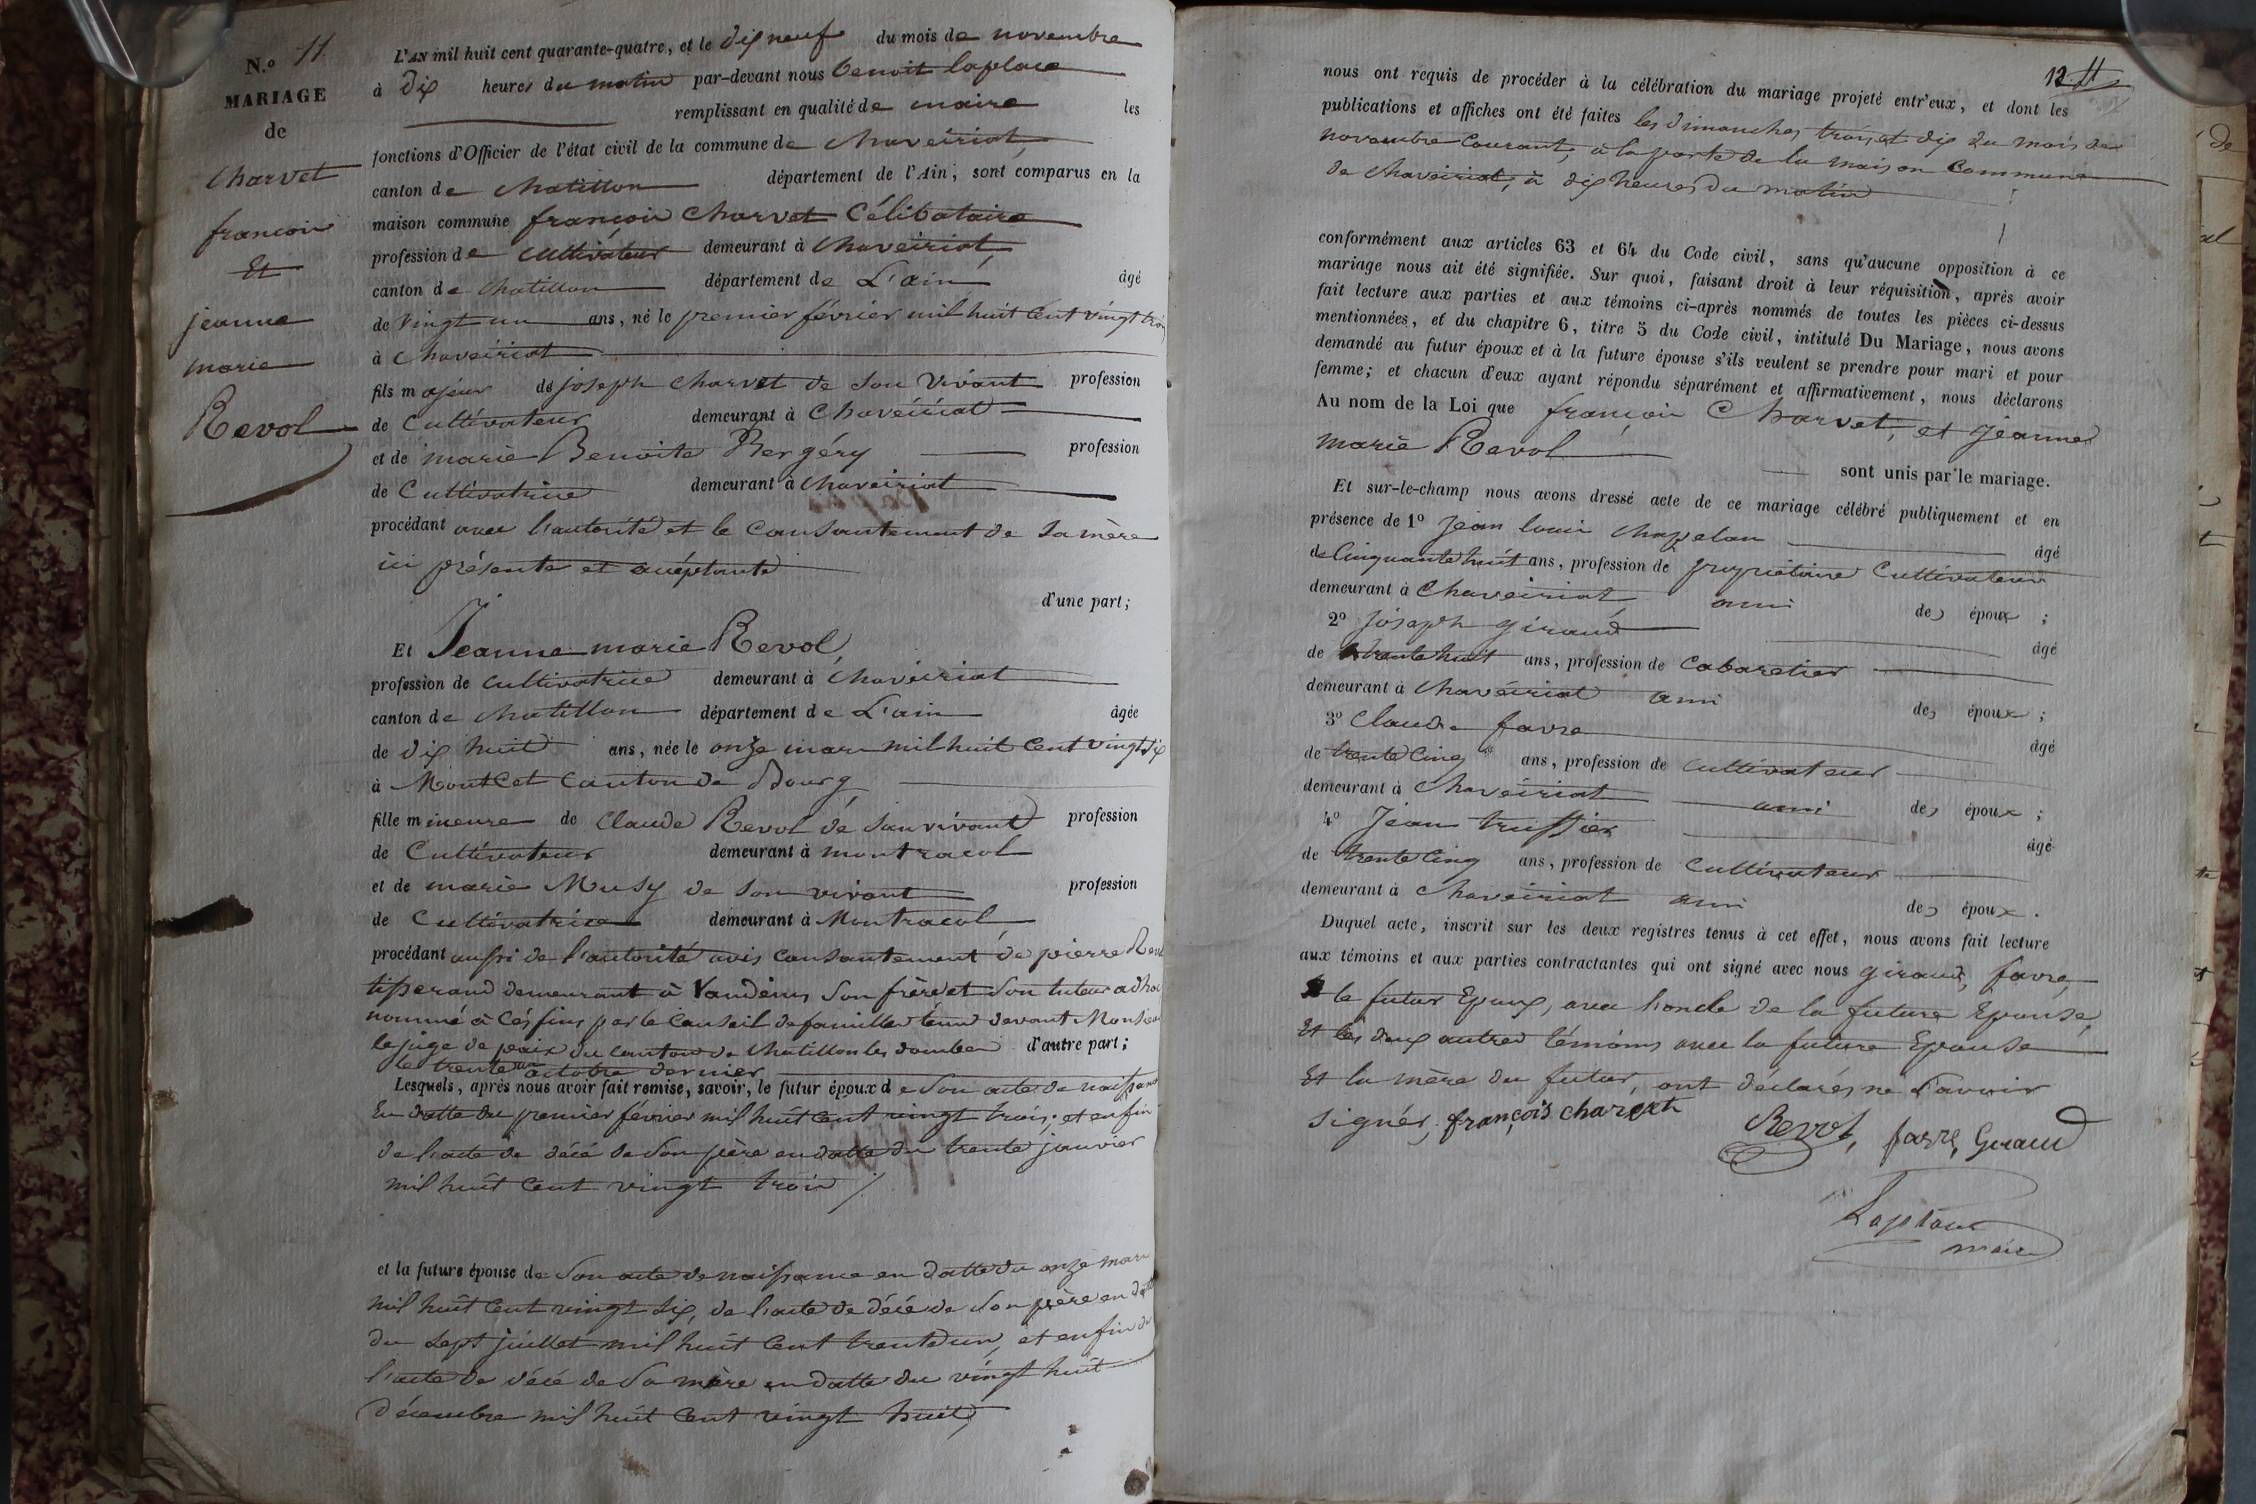 N.o 11
MARIAGE
de
Charvet
françois
Et
jeanne
marie
Revol
L'AN mil huit cent quarante-quatre, et le dix neuf du mois de novembre
à dix heures du matin par-devant nous Benoit laplace
remplissant en qualité de maire les
fonctions d'Officier de l'état civil de la commune de Chaveiriat,
canton de Chatillon département de l'Ain; sont comparus en la
maison commune françois Charvet Célibataire
profession de Cultivateur demeurant à Chaveiriat,
canton de Chatillon département de L'ain âgé
de vingt un ans, né le premier février mil huit Cent vingt trois
à Chaveiriat
fils majeur de joseph Charvet de son vivant profession
de Cultivateur demeurant à Chaveiriat
et de marie Benoite Bergéry profession
de Cultivatrice demeurant à Chaveiriat
procédant avec l'autorité et le Consantement de sa mère
ici présente et acceptante
d'une part;
Et Jeanne marie Revol,
profession de Cultivatrice demeurant à Chaveiriat
canton de Chatillon département de L'ain âgée
de dix huit ans, née le onze mars mil huit Cent vingt six
à MontCet Canton de Bourg
fille mineure de Claude Revol de sauvivant profession
de Cultivateur demeurant à montracol
et de marie Musy de son vivant profession
de Cultivatrice demeurant à Montracol,
procédant aussi de l'autorité avis Consantement de pierre Revol
tisserand demeurant à Vandeins Son frère et Son tuteur adhoc
nommé à Cés fins par le Conseil de famille tenu devant Monsieur
le juge de paix du Canton de Chatillon les dombes d'autre part;
le trente un octobre dernier
Lesquels, après nous avoir fait remise, savoir, le futur époux de Son acte de naissance
En datte du premier février mil huit Cent vingt trois; et enfin
de l'acte de décé de Son père en datte du trente janvier
mil huit Cent vingt trois /
et la future épouse de Son acte de naissance en datte du onze mars
mil huit Cent vingt six, de l'acte de décé de Son père en datte
du sept juillet mil huit Cent trente un, et enfin de
l'acte de décé de Sa mère en datte du vingt huit
décembre mil huit Cent vingt huit,
12
nous ont requis de procéder à la célébration du mariage projeté entr'eux, et dont les
publications et affiches ont été faites les dimanches trois et dix du mois de
novembre Courant, à la porte de la maison Commune
de Chaveiriat, à dix heures du matin
conformément aux articles 63 et 64 du Code civil, sans qu'aucune opposition à ce
mariage nous ait été signifiée. Sur quoi, faisant droit à leur réquisition, après avoir
fait lecture aux parties et aux témoins ci-après nommés de toutes les pièces ci-dessus
mentionnées, et du chapitre 6, titre 5 du Code civil, intitulé Du Mariage, nous avons
demandé au futur époux et à la future épouse s'ils veulent se prendre pour mari et pour
femme; et chacun d'eux ayant répondu séparément et affirmativement, nous déclarons
Au nom de la Loi que françois Charvet, et Jeanne
marie Revol
sont unis par le mariage.
Et sur-le-champ nous avons dressé acte de ce mariage célébré publiquement et en
présence de 1º Jean louis Chapelan âgé
de Cinquante huit ans, profession de propriétaire Cultivateur
demeurant à Chaveiriat, ami des époux ;
2º Joseph giraud âgé
de trente huit ans, profession de Cabaretier
demeurant à Chaveiriat ami des époux ;
3º Claude favre âgé
de trente Cinq ans, profession de Cultivateur
demeurant à Chaveiriat ami des époux ;
4º Jean truffier âgé
de trente Cinq ans, profession de Cultivateur
demeurant à Chaveiriat ami des époux .
Duquel acte, inscrit sur les deux registres tenus à cet effet, nous avons fait lecture
aux témoins et aux parties contractantes qui ont signé avec nous giraud, favre,
le futur Epoux, avec l'oncle de la future Epouse,
Et les deux autres témoins avec la future Epouse
Et la mère du futur, ont déclarés ne Savoir
signér. françois charvet
Revol, favre, Giraud
Laplace
maire